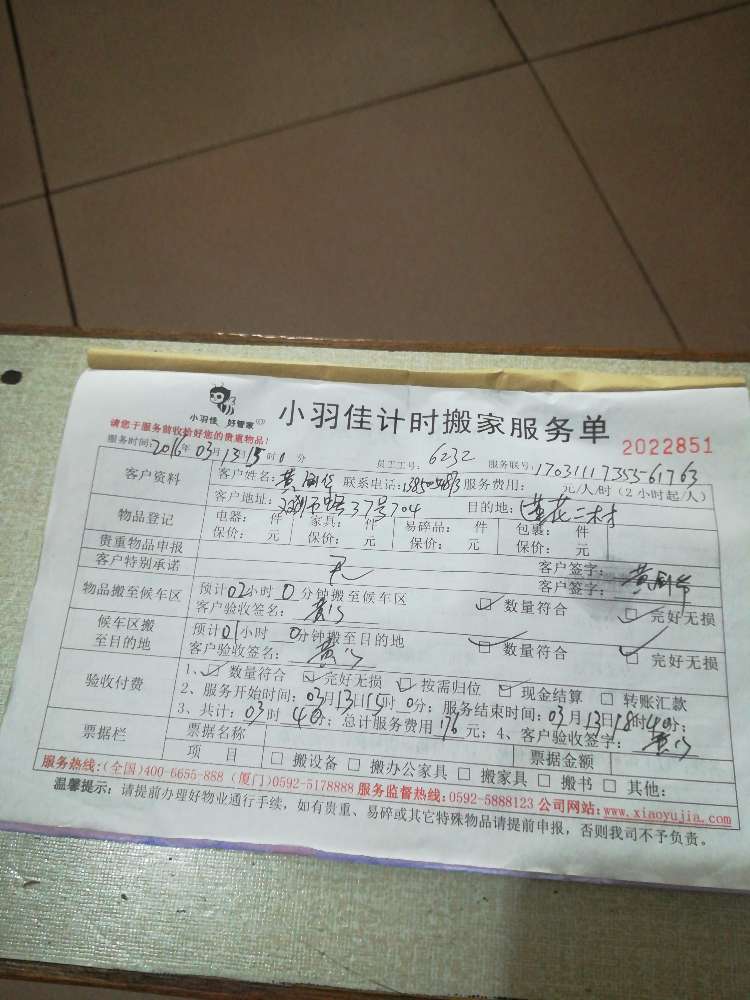 小羽佳 好管家
小羽佳计时搬家服务单
2022851
请您于服务前收拾好您的贵重物品!
服务时间:2016年03月13日15时0分 员工工号:6232 服务联号:17031117355561763
客户资料
客户姓名:黄 联系电话: 服务费用: 元/人/时(2小时起/人)
客户地址: 37号704 目的地:莲花二村
物品登记
电器: 件 家具: 件 易碎品: 件 包裹: 件
保价: 元 保价: 元 保价: 元 保价: 元
贵重物品申报 无 客户签字:
客户特别承诺 客户签字:黄
物品搬至候车区
预计02小时0分钟搬至候车区 数量符合 完好无损
客户验收签名:黄
候车区搬至目的地
预计01小时0分钟搬至目的地 数量符合 完好无损
客户验收签名:黄
验收付费
1、 数量符合 完好无损 按需归位 现金结算 转账汇款
2、服务开始时间:03月13日15时0分; 服务结束时间:03月13日18时40分;
3、共计:03时40分; 总计服务费用176元; 4、客户验收签字:黄
票据栏
票据名称 票据金额
项 目 搬设备 搬办公家具 搬家具 搬书 其他:
服务热线:(全国)400-6655-888 (厦门)0592-5178888 服务监督热线:0592-5888123 公司网站:www.xiaoyujia.com
温馨提示:请提前办理好物业通行手续,如有贵重、易碎或其它特殊物品请提前申报,否则我司不予负责。